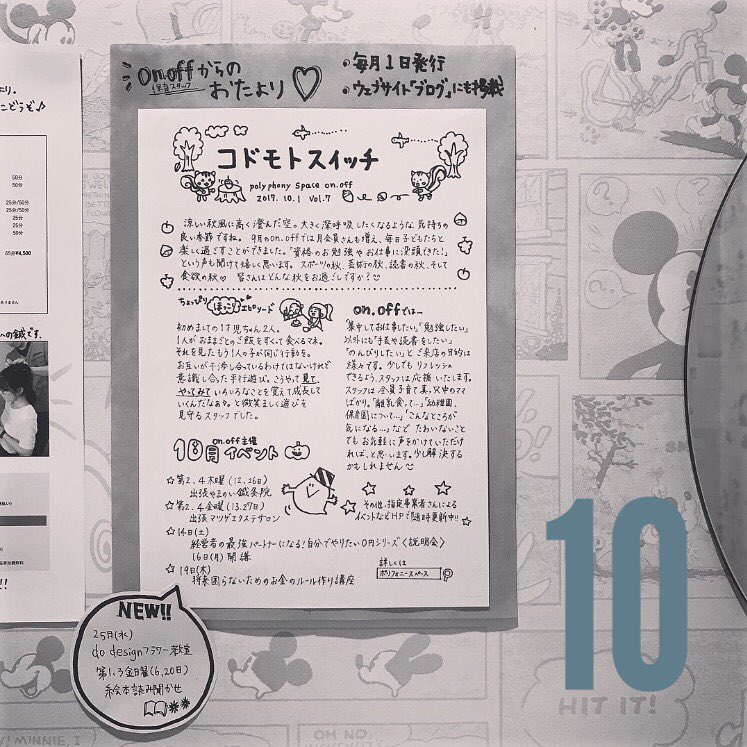 on.offからの
保育スタッフ
おたより♡
◦毎月1日発行
◦ウェブサイト「ブログ」にも掲載
コドモトスイッチ
polyphony space on.off
2017. 10. 1 Vol.7
涼しい秋風に高く澄んだ空。大きく深呼吸したくなるような気持ちの
良い季節ですね。9月のon.offでは月会員さんも増え、毎日子どもたちと
楽しく過ごすことができました。「資格のお勉強やお仕事に没頭できた!」
という声も聞けて嬉しく思います。スポーツの秋、芸術の秋、読書の秋、そして
食欲の秋♡ 皆さんはどんな秋をお過ごしですか?
ちょっぴりほっこりエピソード
初めましての1才児ちゃん2人。
1人がおままごとのご飯をすくって食べるマネ。
それを見たもう1人の子が同じ行動を。
お互いが干渉し合っているわけではないけれど
意識し合った平行遊び。こうやって見て、
やってみていろいろなことを覚えて成長して
いくんだなぁ。と微笑ましく遊びを
見守るスタッフでした。
on.offでは…
「集中してお仕事したい」「勉強したい」
以外にも「手芸や読書をしたい」
「のんびりしたい」とご来店の目的は
様々です。少しでもリフレッシュ
できるよう、スタッフは応援いたします。
スタッフは全員子育て真っ只中のママ
ばかり。「離乳食って…」「幼稚園、
保育園について…」「こんなところが
気になる…」などたわいないこと
でもお気軽に声をかけていただけ
ればと思います。少し解決する
かもしれません
on.off主催
10月イベント
☆第2.4木曜(12.26日)
出張やまのい鍼灸院
☆第2.4金曜(13.27日)
出張マツゲエクステサロン
☆14日(土)
経営者の最強パートナーになる!自分でやりたい0円シリーズ〈説明会〉
16日(月)開講
☆19日(木)
将来困らないためのお金のルール作り講座
その他、指定事業者さんによる
イベントなどHPで随時更新中!!
詳しくは
ポリフォニースペース
NEW!!
25日(水)
do designフラワー教室
第1.3金曜(6.20日)
絵本読み聞かせ
10
こどうぞ♪
50分
50分
25分/50分
25分/50分
25分
25分
50分
¥4,500
への鍼です。
HIT IT!
OH NO,
MINNIE, I